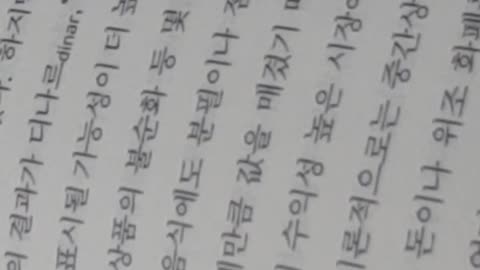 하지
의 결과가 디나르dinar,
표시될 가능성이 더
상품의 불순화 등 및
음식에도 분필이나
만큼 값을 매겼기
수익성 높은 시장
론적으로는 중간상
돈이나 위조 화폐